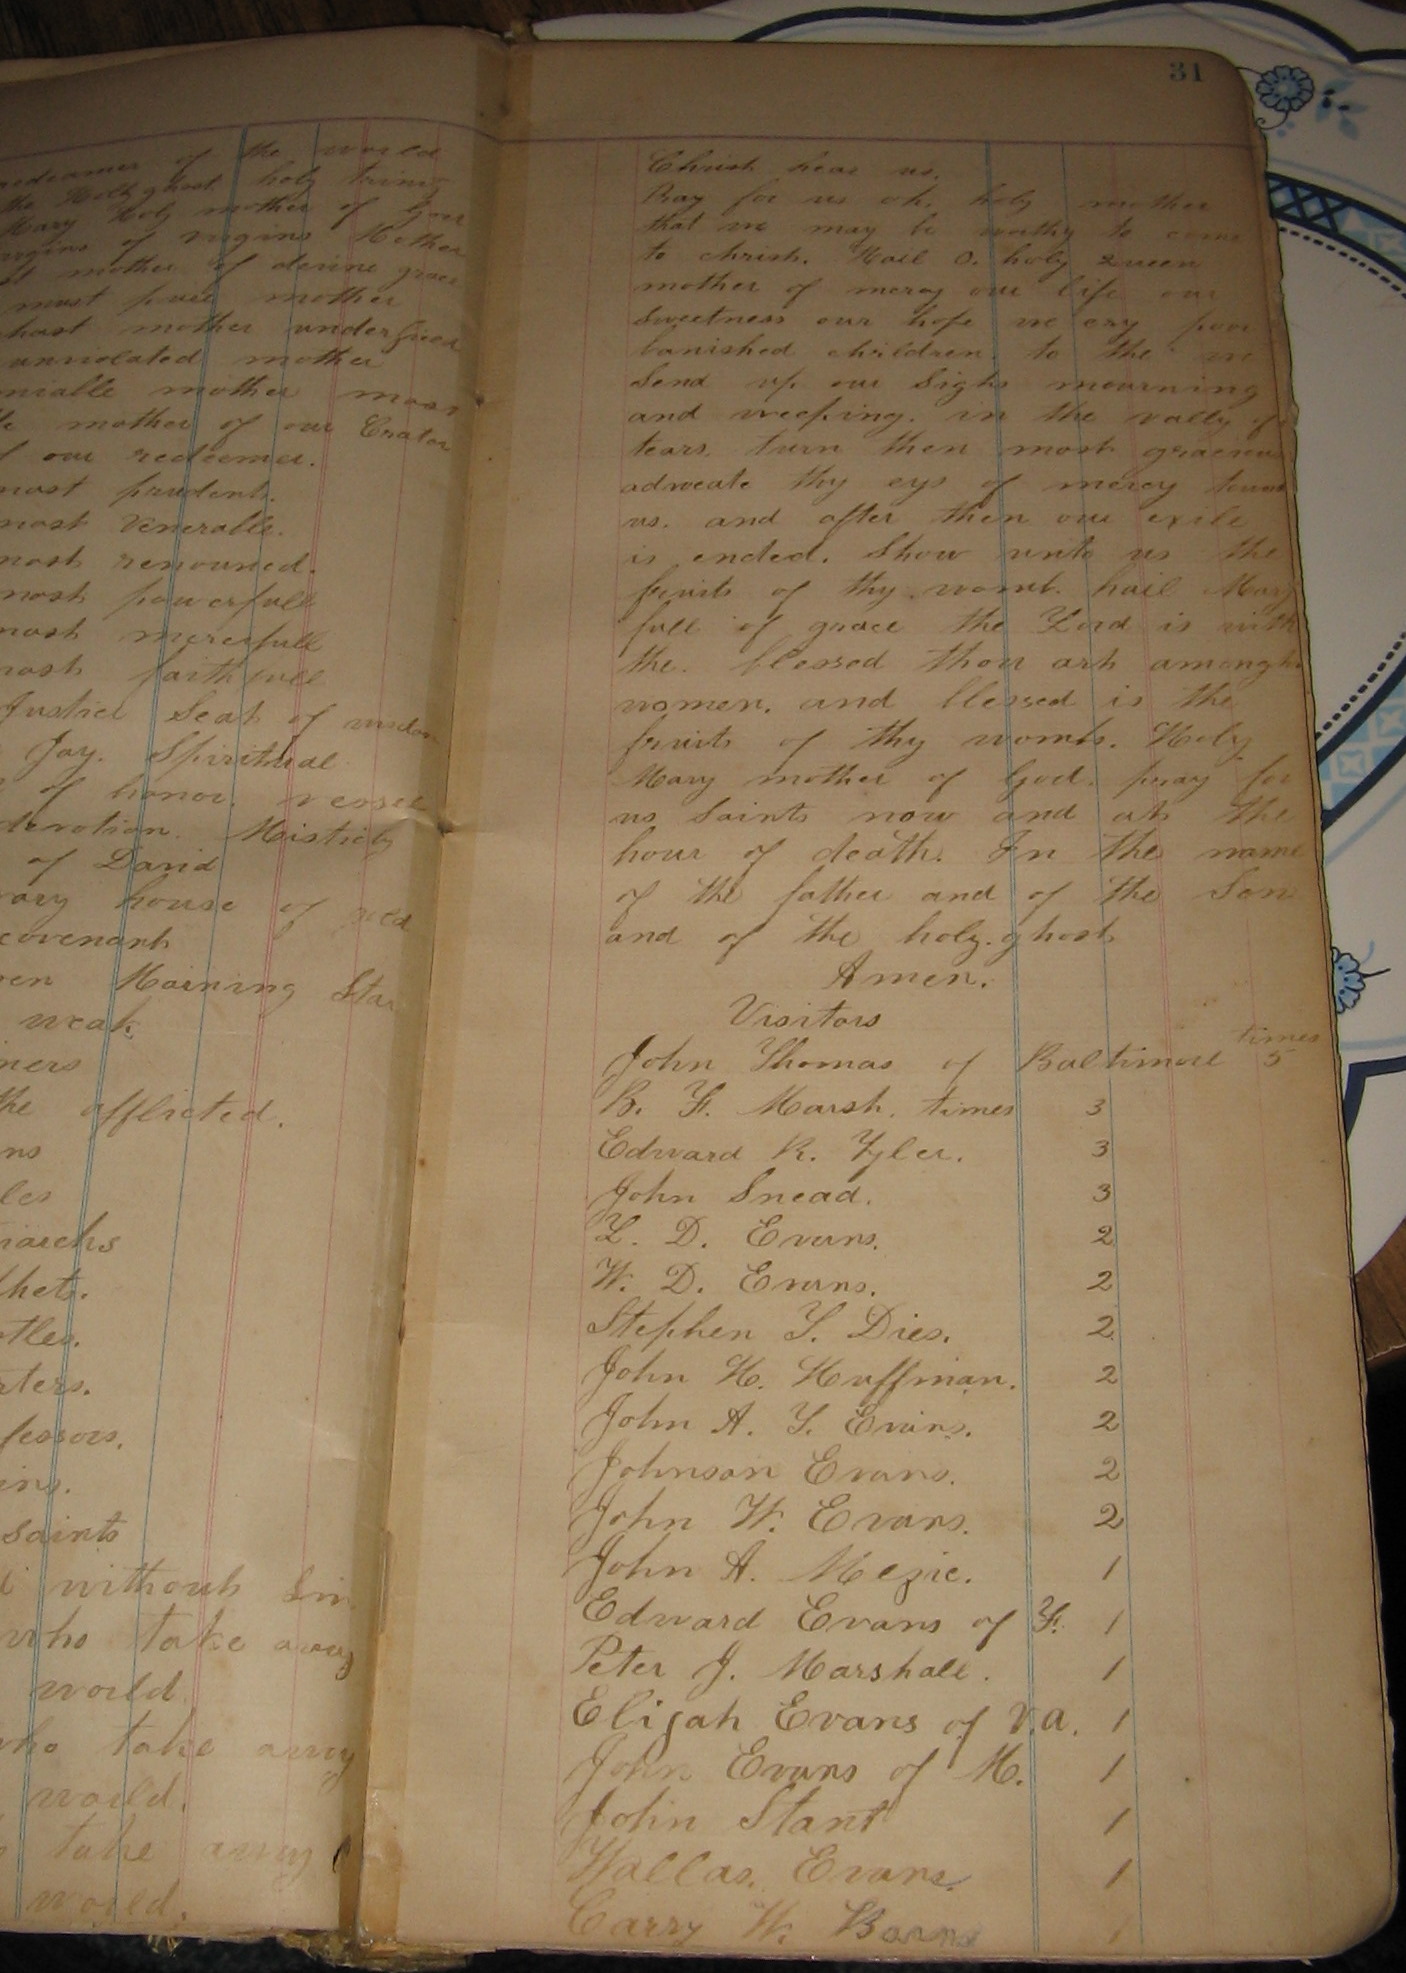 redeamer of the world
the Holy ghost holy trinity
Mary Holy mother of God
virgins of virgins Mother
mother of devine grace
most pure mother
chast mother underfiled
unviolated mother
amiable mother most
mother of our Crator
of our redeemer.
most prudent.
most Venerable.
most renouned.
most powerfull
most mercifull
most faithfull
Justice Seat of wisdom
Joy. Spiritual
of honor. vessel
devotion. Mistich
of David
ivory house of gold
covenant
Morning Star
weak
the afflicted.
saints
without Sin
who take away
world
who take away
world.
take away
world.
31
Christ hear us.
Pray for us oh. holy mother
that we may be worthy to come
to christ. Hail O. holy queen
mother of mercy our life our
sweetness our hope we cry poor
banished children. to the we
Send up our Sighs mourning
and weeping. in the vally of
tears. turn then most gracious
advocate thy eys of mercy toward
us. and after then our exile
is ended. Show unto us the
fruits of thy womb. hail Mary
full of grace the Lord is with
the. blessed thou art amongh
women. and blessed is the
fruits of thy womb. Holy
Mary mother of God. pray for
us Saints now and at the
hour of death. In the name
of the father and of the Son
and of the holy. ghost
Amen.
Visitors
times
John Thomas of Baltimore 5
B. F. Marsh. times 3
Edward R. Tyler. 3
John Snead. 3
L. D. Evans. 2
W. D. Evans. 2
Stephen T. Dies. 2
John H. Huffman. 2
John A. T. Evans. 2
Johnson Evans. 2
John W. Evans. 2
John A. Mezic. 1
Edward Evans of F. 1
Peter J. Marshall. 1
Elijah Evans of V.a. 1
John Evans of M. 1
John Stant 1
Wallas. Evans. 1
Carry W. Barns 1